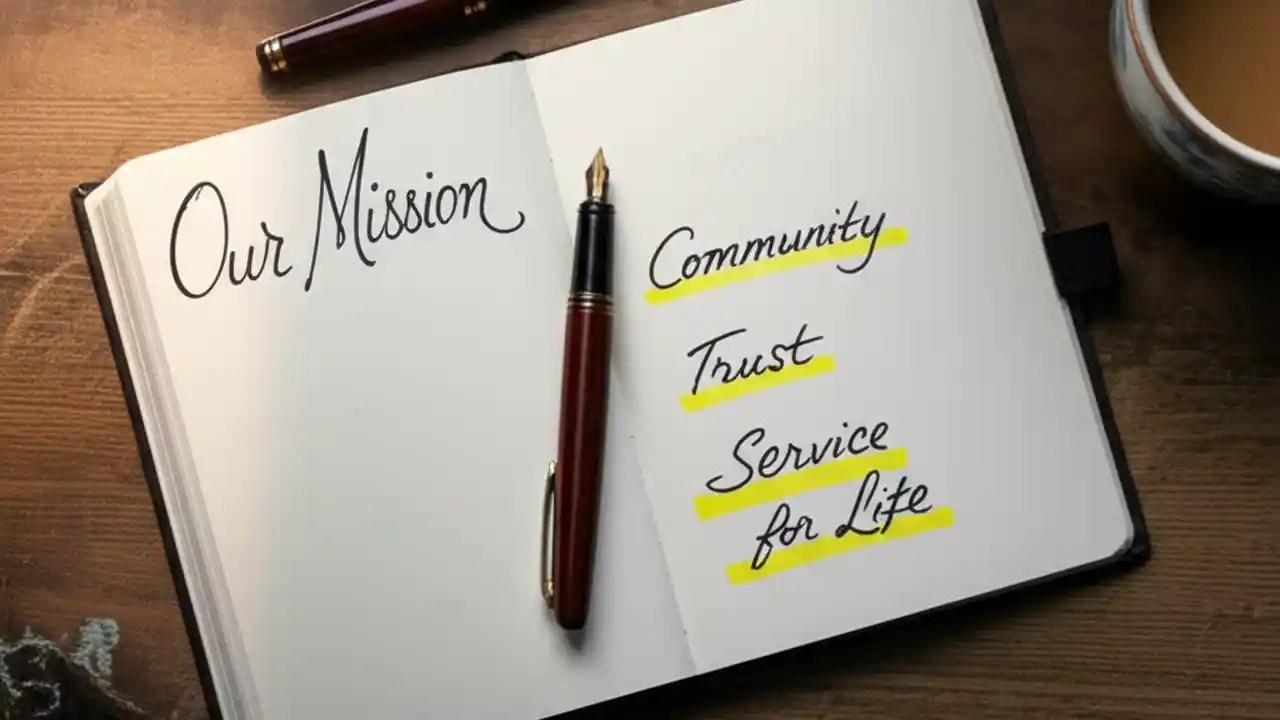 Our Mission
Community
Trust
Service
for Life